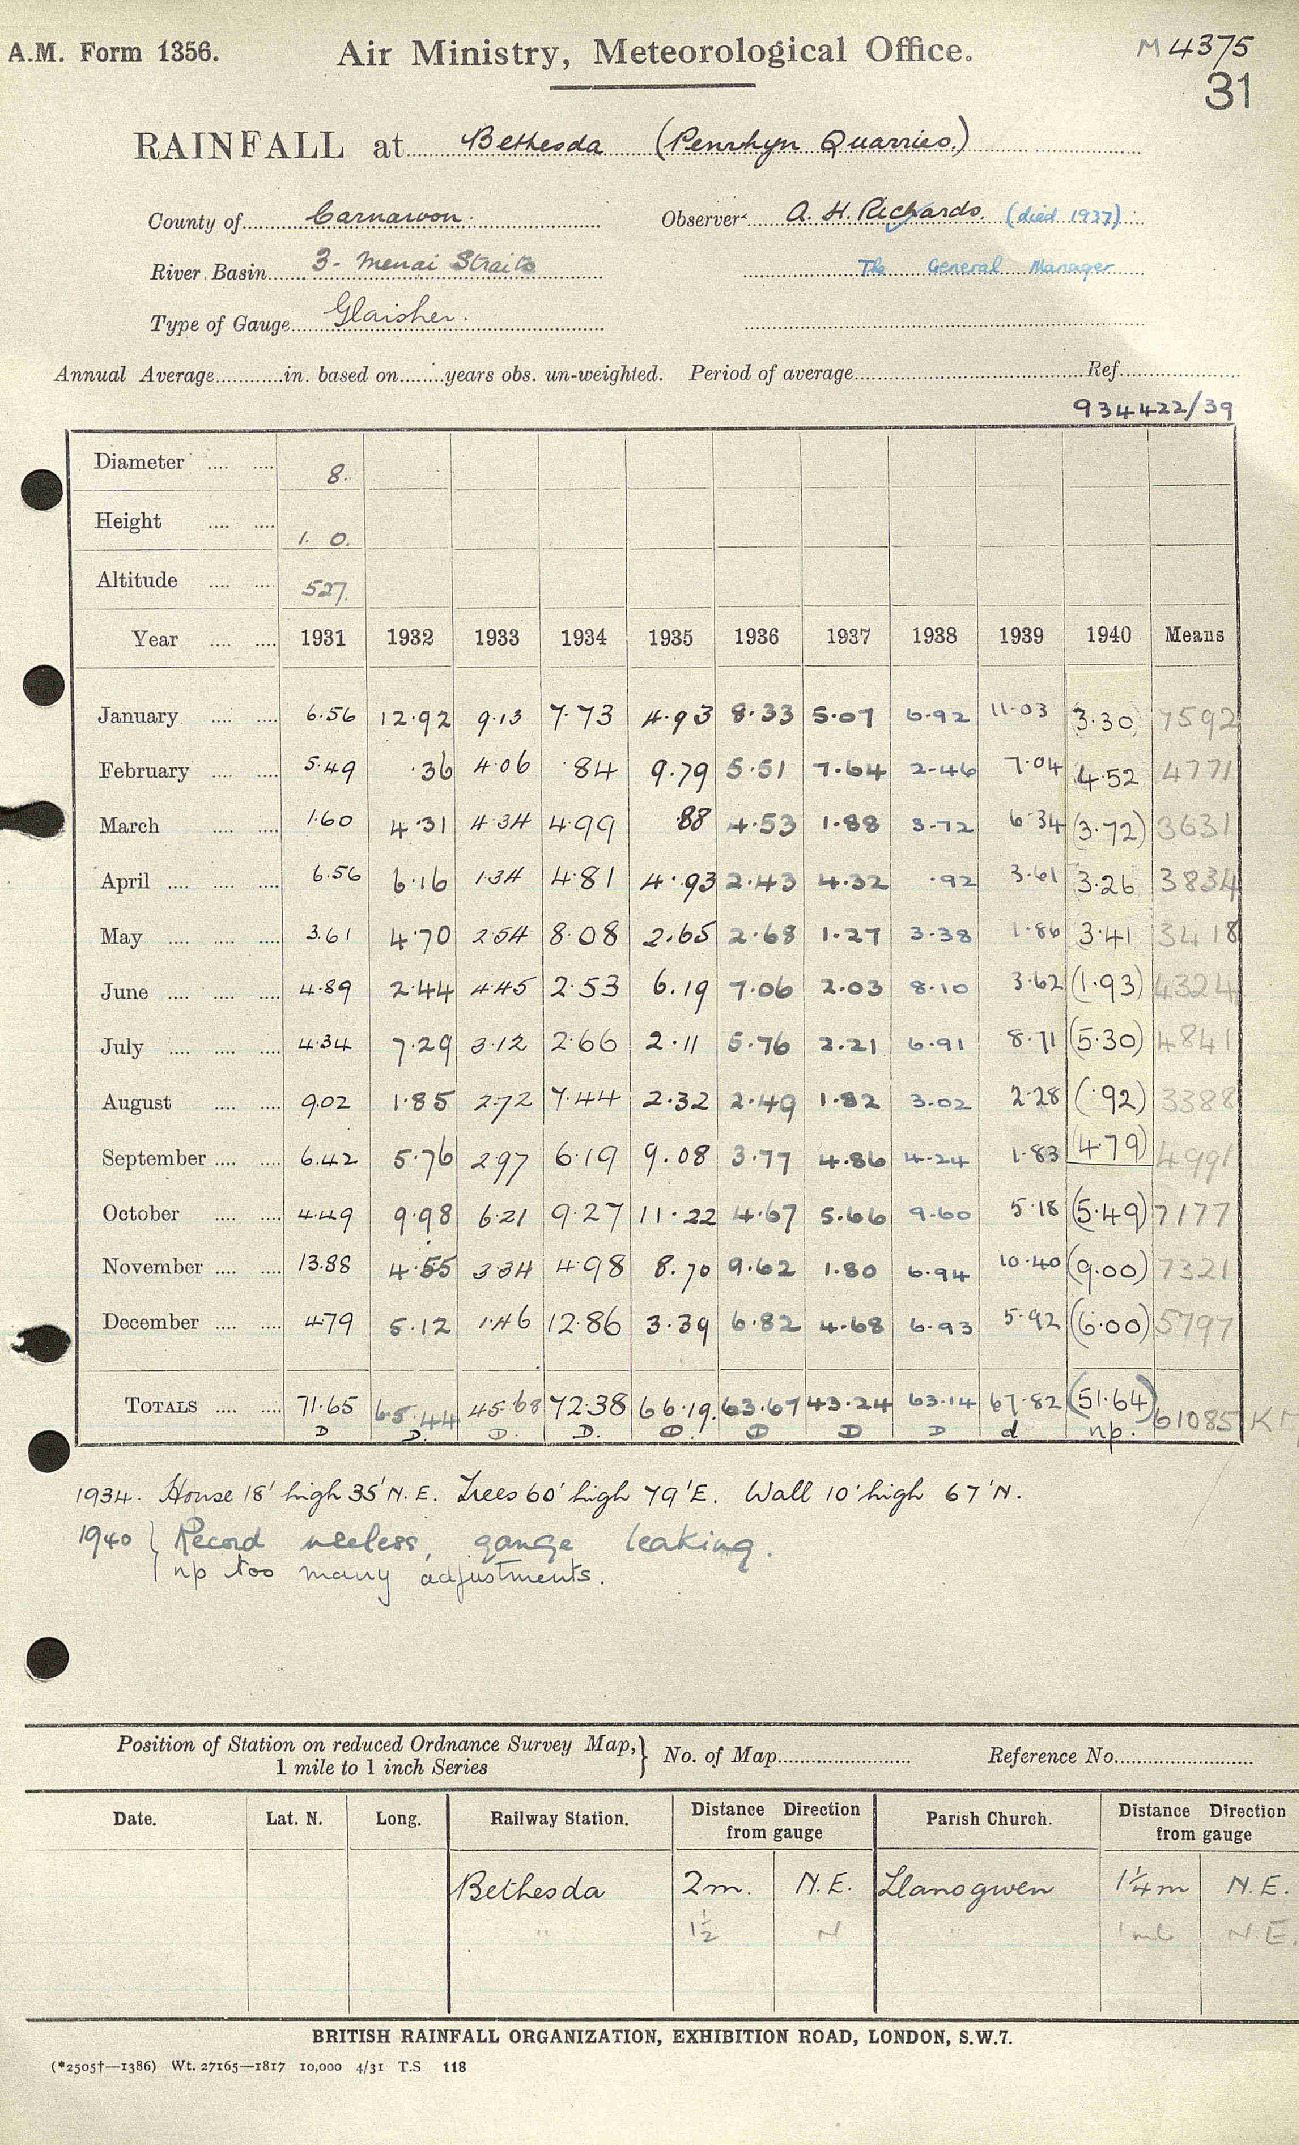 A.M. Form 1356. Air Ministry, Meteorological Office. M 4375
31
RAINFALL at Bethesda (Penrhyn Quarries.)
County of Carnarvon. Observer A. H. Richards. (died 1937)
River Basin 3 - Menai Straits The General Manager
Type of Gauge Glaisher.
Annual Average............in. based on........years obs. un-weighted. Period of average Ref.
934422/39
Diameter .... .... 8.
Height .... .... 1. 0.
Altitude .... .... 527.
Year .... .... 1931 1932 1933 1934 1935 1936 1937 1938 1939 1940 Means
January .... .... 6.56 12.92 9.13 7.73 4.93 8.33 5.07 6.92 11.03 3.30 7592
February .... .... 5.49 .36 4.06 .84 9.79 5.51 7.64 2.46 7.04 4.52 4771
March .... .... 1.60 4.31 4.34 4.99 .88 4.53 1.88 3.72 6.34 (3.72) 3631
April .... .... .... 6.56 6.16 1.34 4.81 4.93 2.43 4.32 .92 3.61 3.26 3834
May .... .... .... 3.61 4.70 2.54 8.08 2.65 2.68 1.27 3.38 1.86 3.41 3418
June .... .... .... 4.89 2.44 4.45 2.53 6.19 7.06 2.03 8.10 3.62 (1.93) 4324
July .... .... .... 4.34 7.29 3.12 2.66 2.11 5.76 2.21 6.91 8.71 (5.30) 4841
August .... .... 9.02 1.85 2.72 7.44 2.32 2.49 1.82 3.02 2.28 (.92) 3388
September .... .... 6.42 5.76 2.97 6.19 9.08 3.77 4.86 4.24 1.83 (4.79) 4991
October .... .... 4.49 9.98 6.21 9.27 11.22 4.67 5.66 9.60 5.18 (5.49) 7177
November .... .... 13.88 4.55 3.34 4.98 8.70 9.62 1.80 6.94 10.40 (9.00) 7321
December .... .... 4.79 5.12 1.46 12.86 3.39 6.82 4.68 6.93 5.92 (6.00) 5797
TOTALS .... .... 71.65 65.44 45.68 72.38 66.19. 63.67 43.24 63.14 67.82 (51.64) 61085
D D. D. D. D. D D D d np.
1934. House 18' high 35' N.E. Trees 60' high 79' E. Wall 10' high 67' N.
1940 } Record useless, gauge leaking.
np too many adjustments.
Position of Station on reduced Ordnance Survey Map, } No. of Map Reference No.
1 mile to 1 inch Series
Date. Lat. N. Long. Railway Station. Distance Direction from gauge Parish Church. Distance Direction from gauge
Bethesda 2m. N.E. Llanogwen 1¼m N.E.
" 1½ N " 1 ml N.E.
BRITISH RAINFALL ORGANIZATION, EXHIBITION ROAD, LONDON, S.W.7.
(*2505†—1386) Wt. 27165—1817 10,000 4/31 T.S 118